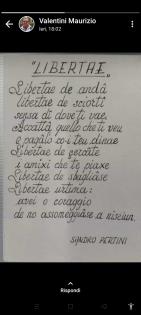 Valentini Maurizio
Ieri, 18:02
"LIBERTAE"
Libertae de andâ
libertae de sciortî
sensa dî dove ti vae.
Accattâ quello che ti veu
e pagalo co-i teu dinae
Libertae de çercâte
i amixi che te piaxe
Libertae de sbagliâse
Libertae urtima:
avei o coraggio
de no assomeggiâse a nisciun.
SANDRO PERTINI
Rispondi